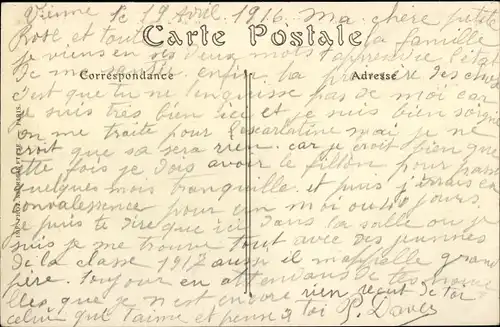 Vienne le 19 Avril 1916. Ma chère petite
Rose et toute la famille
Carte Postale
je viens en ces deux mots apprendre l'état
de ma santé. enfin la première des choses
Correspondance
Adresse
c'est que tu ne inquiesse pas de moi car
je suis très bien ici et je suis bien soigné
on me traite pour l'escarlatine mai je ne
croit que sa sera rien. car je croit bien que
cette fois je dois avoir le fillon pour passé
quelques mois tranquille. et puis j'irais en
convalessence pour un moi ou 40 jours
je puis te dire que ici dans la salle ou je
suis je me trouve tout avec des jeunes
de la classe 1917 aussi il mappelle grand
père. Toujour en attendans de tes nouve
lles que je n'est encore rien reçut de toi
celui qui t'aime et pense a toi P.
PARIS